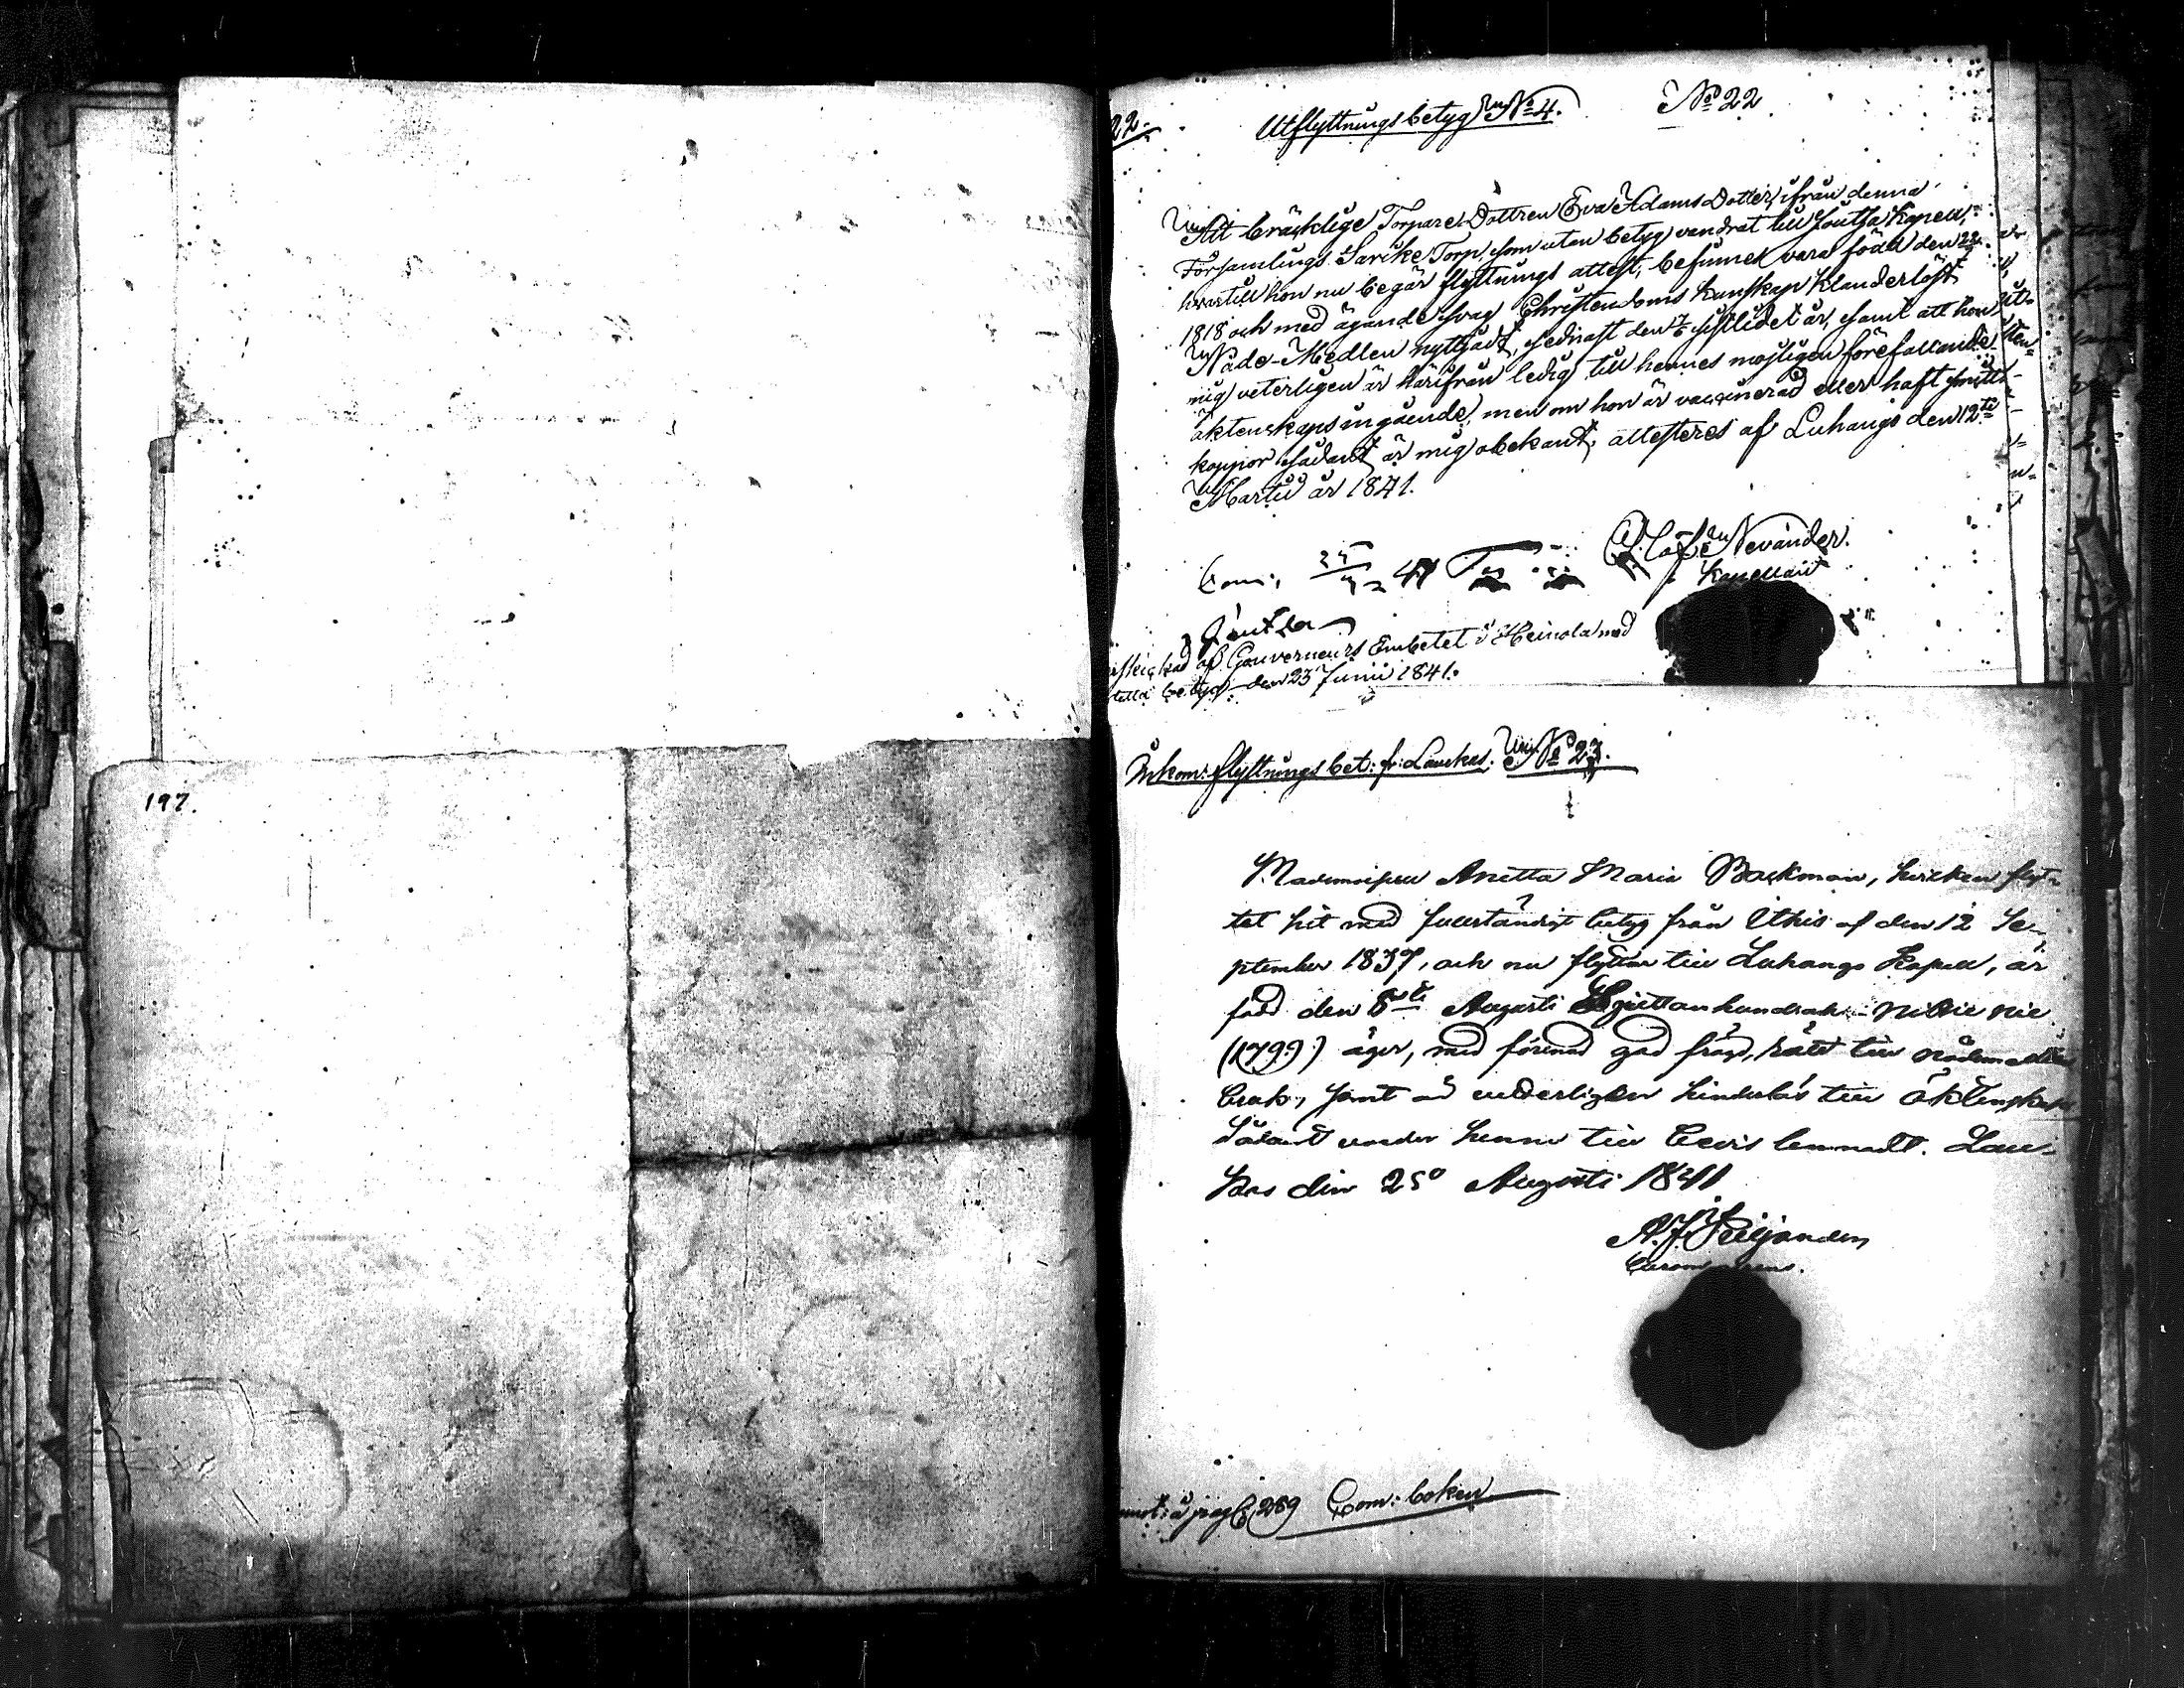 197.
22.
Utflyttningsbetyg No 4. No 22
Att bräcklige Torpare Dottren Eva Adams Dotter, ifrån denna
Församlings Sarike Torp, som utan betyg vandrat till Joutsa Kapell,
hvartill hon nu begär flyttnings attest, befunnen vara född den 22
1818 och med ägande svag Christendoms kunskap klanderlöst
Nåde-Medlen nyttjadt, sednast den sistlidet år, samt att hon
mig veterligen är härifrån ledig till hennes möjligen förefallande
äktenskaps ingående, men om hon är vaccinerad eller haft smitt-
koppor sådant är mig obekant, attesteres af Luhango den 12te
Martii år 1841.
Olof Nevander.
Kapellan
Com:
Joutsa
af Gouverneurs Embetet i Heinola med
betyg den 23 Junii 1841.
Inkom: flyttnings bet: fr: Laukas. No 23.
Mademoisell Anetta Maria Backman, hvilken flyt-
tet hit med fullständigt betyg från Itkis af den 12 Se-
ptember 1837, och nu flyttar till Luhango Kapell, är
född den 8de Augusti Sjuttonhundrade Nittie nie
(1799) äger, med förenad god frägd, rätt till nådemedlens
bruk, samt är veterligen hinderlös till äktenskap
Sådant varder henne till bevis lemnadt. Lau-
kas den 25o Augusti 1841
A. J. Piljander
à pag 289 Com: boken